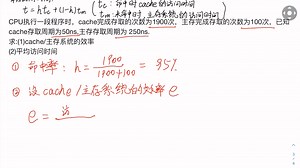 t = htc + (1-h)tm (tc: 命中时cache的访问时间
tm: 未命中时,主存系统的访问时间)
CPU执行一段程序时, cache完成存取的次数为1900次, 主存完成存取的次数为100次, 已知
cache存取周期为50ns,主存存取周期为 250ns.
求:(1)cache/主存系统的效率
(2)平均访问时间
① 命中率: h = 1900/1900+100 = 95%
② 设 cache/主存系统的效率 e
e = 访